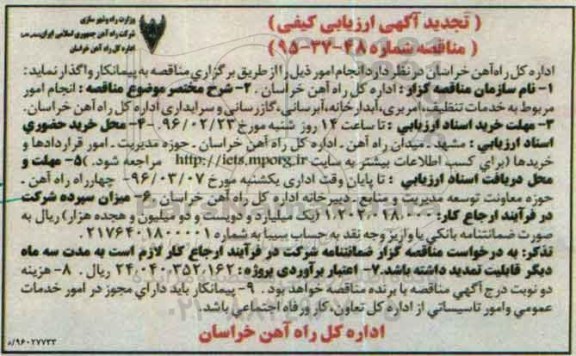 ( تجدید آگهی ارزیابی کیفی )
( مناقصه شماره ۴۸-۳۷-۹۵ )
وزارت راه و شهرسازی
شرکت راه آهن جمهوری اسلامی ایران
اداره کل راه آهن خراسان
اداره کل راه آهن خراسان در نظر دارد انجام امور ذیل را از طریق برگزاری مناقصه به پیمانکار واگذار نماید:
۱- نام سازمان مناقصه گزار: اداره کل راه آهن خراسان. ۲- شرح مختصر موضوع مناقصه: انجام امور
مربوط به خدمات تنظیف، آمربری، آبدارخانه، آبرسانی، گازرسانی و سرایداری اداره کل راه آهن خراسان.
۳- مهلت خرید اسناد ارزیابی: تا ساعت ۱۲ روز شنبه مورخ ۹۶/۰۲/۲۳. ۴- محل خرید حضوری
اسناد ارزیابی: مشهد. میدان راه آهن. اداره کل راه آهن خراسان. حوزه مدیریت. امور قراردادها و
خریدها (برای کسب اطلاعات بیشتر به سایت http://iets.mporg.ir مراجعه شود.) ۵- مهلت و
محل دریافت اسناد ارزیابی: تا پایان وقت اداری یکشنبه مورخ ۹۶/۰۳/۰۷. چهارراه راه آهن.
حوزه معاونت توسعه مدیریت و منابع. دبیرخانه اداره کل راه آهن خراسان. ۶- میزان سپرده شرکت
در فرآیند ارجاع کار: ۱.۲۰۲.۰۱۸.۰۰۰ (یک میلیارد و دویست و دو میلیون و هجده هزار) ریال به
صورت ضمانتنامه بانکی یا واریز وجه نقد به حساب سیبا به شماره ۲۱۷۶۴۰۱۸۰۰۰۰۱.
تذکر: به درخواست مناقصه گزار ضمانتنامه شرکت در فرآیند ارجاع کار لازم است به مدت سه ماه
دیگر قابلیت تمدید داشته باشد. ۷- اعتبار برآوردی پروژه: ۲۴.۰۴۰.۳۵۲.۱۶۲ ریال. ۸- هزینه
دو نوبت درج آگهی مناقصه با برنده مناقصه خواهد بود. ۹- پیمانکار باید دارای مجوز در امور خدمات
عمومی و امور تاسیساتی از اداره کل تعاون، کار و رفاه اجتماعی باشد.
اداره کل راه آهن خراسان
۸/۹۶۰۲۷۷۳۳